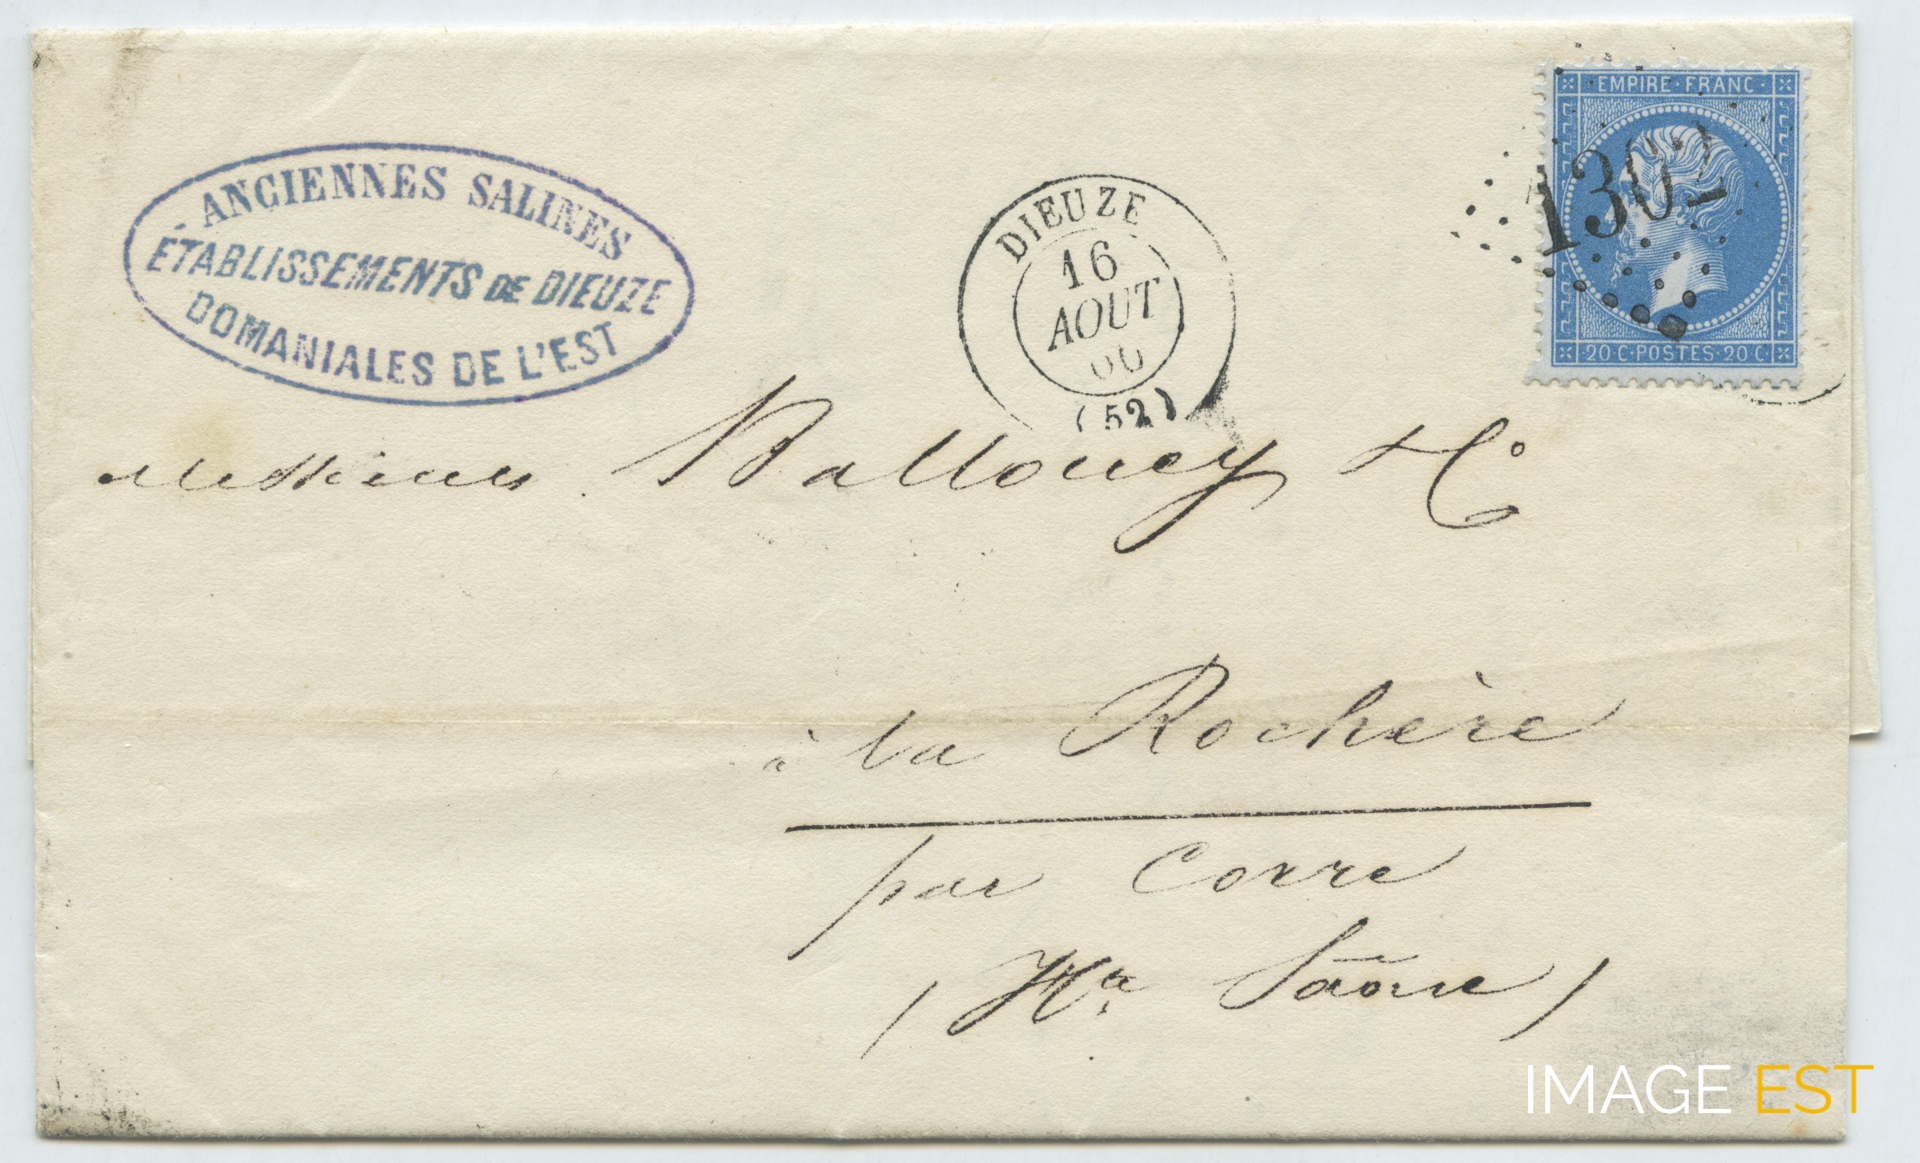 ANCIENNES SALINES
ÉTABLISSEMENTS DE DIEUZE
DOMANIALES DE L'EST
DIEUZE
16
AOUT
66
(52)
EMPIRE FRANC
1302
20 C POSTES 20 C
Messieurs Mallouey & Cº
à la Rochère
par Corre
(Hte Saône)
IMAGE EST